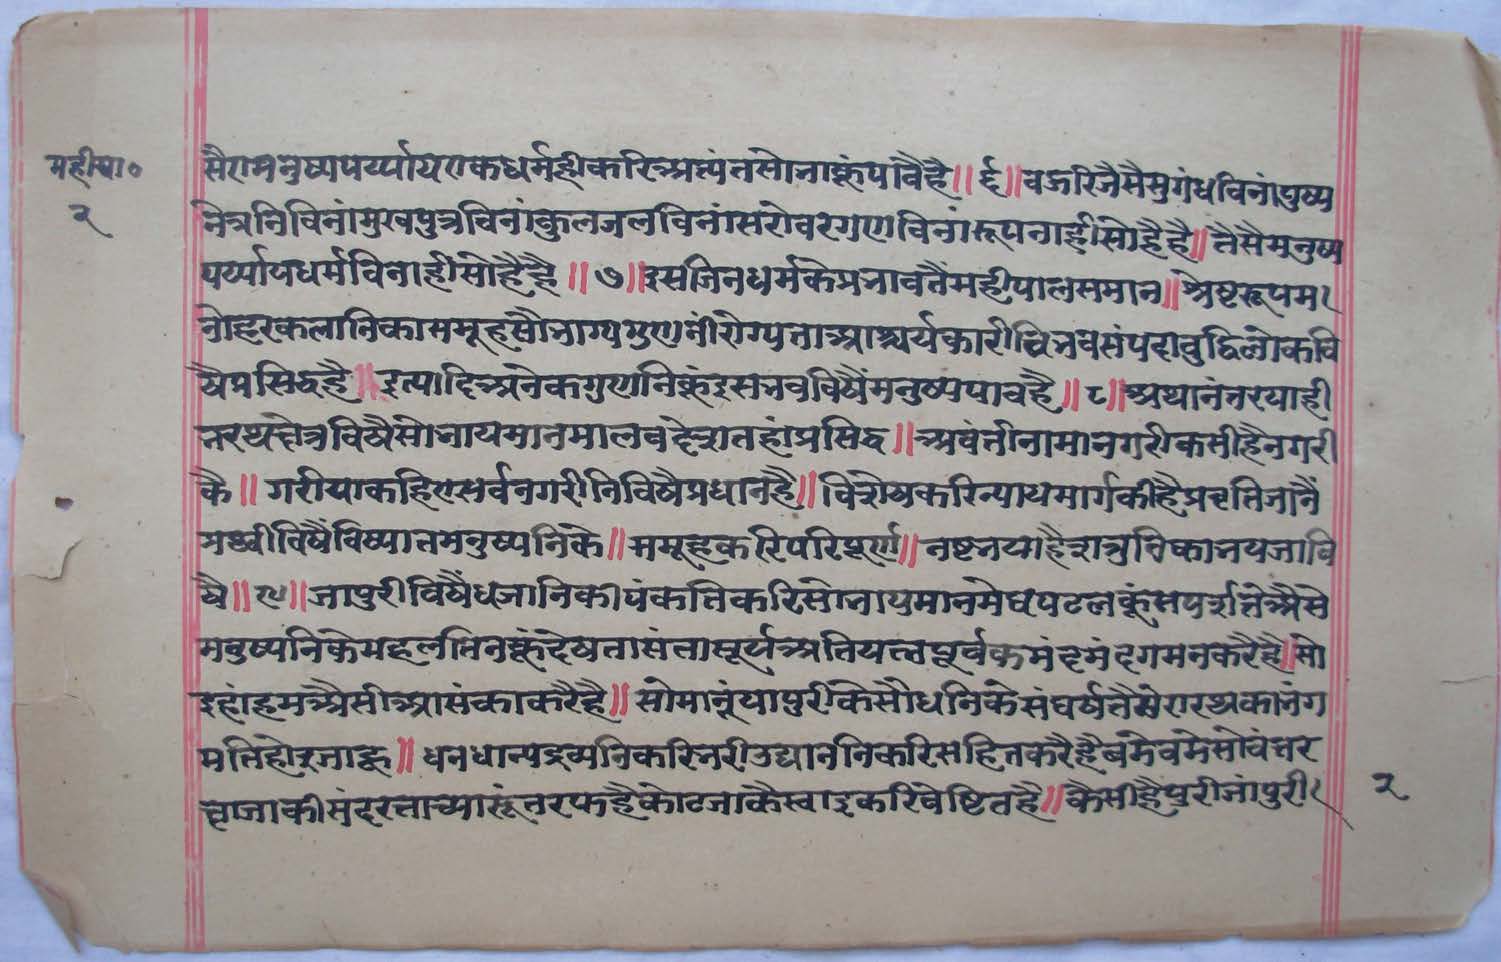 महीपा०
२
सैं या मनुष्यपर्य्यायएकधर्महीकरिअत्यंतसोभाकूंपावैहै॥६॥बऊरिजैसैसुगंधविनांपुष्प
नेत्रनिविनांमुखपुत्रविनांकुलजलविनांसरोवरगुणविनांरूपनाहीसोहैहै॥तैसैमनुष्य
पर्य्यायधर्मविनाहीसोहैहै॥७॥इसजिनधर्मकेप्रभावतैंमहीपालसमान॥श्रेष्टरूपम।
नोहरकलानिकासमूहसौभाग्यगुणनीरोग्यताआश्चर्यकारीविभवसंपदाबुद्धिलोकवि
षैप्रसिद्धहै॥इत्यादिअनेकगुणनिकूंइसभवविषैंमनुष्यपावहै॥८॥अथानंतरयाही
भरथक्षेत्रविषैसोभायमानमालवदेशतहांप्रसिद्ध॥अवंतीनामानगरीकैसीहैनगरी
कै॥गरीयाकहिएसर्वनगरीनिविषैप्रधानहै॥विशेषकरिन्यायमार्गकीहैप्रवृत्तिजानैं
प्रथ्वीविषैंविष्यातमनुष्यनिके॥समूहकरिपरिपूर्ण॥नष्टभयाहैशत्रुनिकाभयजावि
षै॥९॥जापुरीविषैंधजानिकीपंकतिकरिसोभायमानमेघपटलकूंसपर्शतेअैसे
मनुष्यनिकेमहलतिनकूंदेषतासंतासूर्यअतियत्नपूर्वकमंदमंदगमनकरैहै॥सो
इहांहमअैसीआसंकाकरैहै॥सोमानूंयापुरीकेसौधनिकेसंघर्षतैमेरारथकाभंग
मतिहोइजाहू॥धनधान्यद्रव्यनिकरिभरीउद्याननिकरिसहित
जाकीसुंदरताच्यारूंतरफहैकोटजाकैस्वाइकरिवेष्टितहै॥कैसीहैपुरीजांपुरी।
२